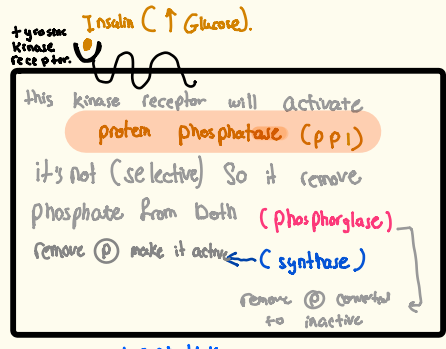 Insulin ( ↑ Glucose).
tyrosine
kinase
receptor.
this kinase receptor will activate
protein phosphatase (pp1)
it's not (selective) So it remove
phosphate from both (phosphorglase)
remove Ⓟ make it active ← (synthase)
remove Ⓟ converted
to inactive